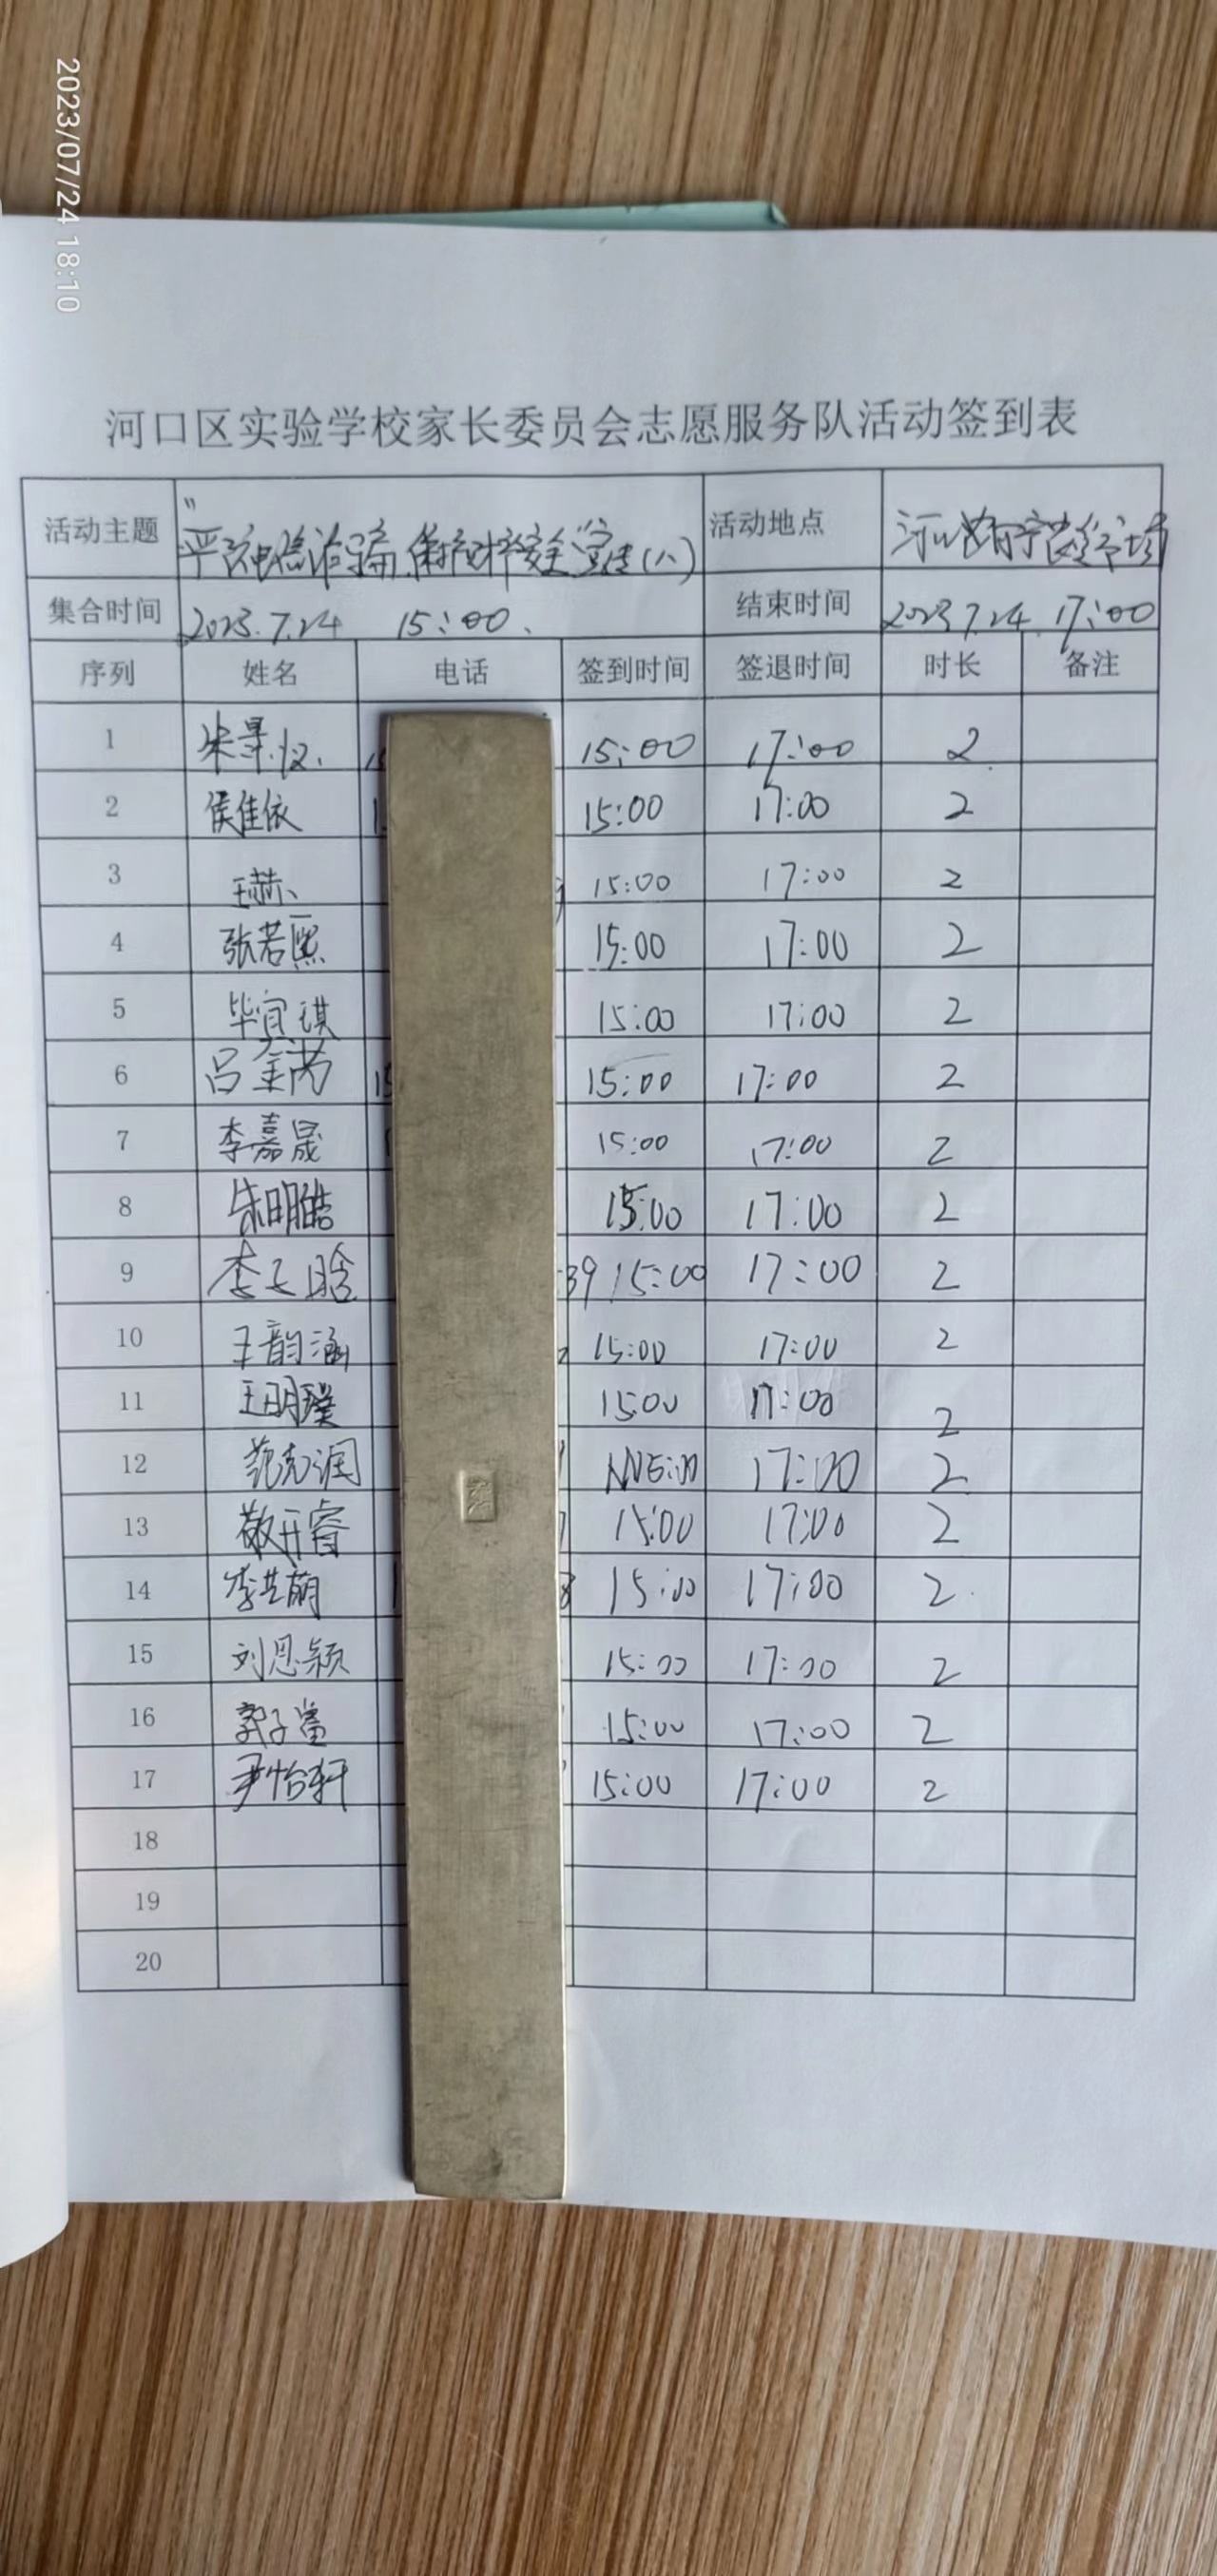 2023/07/24 18:10
河口区实验学校家长委员会志愿服务队活动签到表
活动主题 电信诈骗 财产安全 (八) 活动地点
集合时间 2023.7.24 15:00 结束时间 2023.7.24 17:00
序列 姓名 电话 签到时间 签退时间 时长 备注
1 15:00 17:00 2
2 侯佳依 15:00 17:00 2
3 王赫 15:00 17:00 2
4 张若熙 15:00 17:00 2
5 毕宜琪 15:00 17:00 2
6 吕金芮 15 15:00 17:00 2
7 李嘉晟 15:00 17:00 2
8 朱明皓 15:00 17:00 2
9 李天晗 39 15:00 17:00 2
10 王韵涵 15:00 17:00 2
11 王玥璞 15:00 17:00 2
12 范克润 15:00 17:00 2
13 敬开睿 15:00 17:00 2
14 李芸萌 15:00 17:00 2
15 刘恩颖 15:00 17:00 2
16 郭子 15:00 17:00 2
17 尹怡轩 15:00 17:00 2
18
19
20